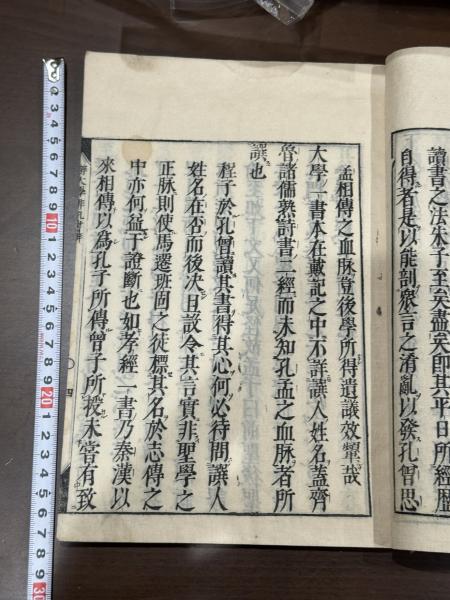 讀書之法朱子至矣盡矣即其平日所經歷
自得者是以能剖衆言之淆亂以發孔曾思
孟相傳之血脉豈後學所得遺議效顰哉
大學一書本在戴記之中不詳譔人姓名蓋齊
魯諸儒熟詩書二經而未知孔孟之血脉者所
譔也
程子於孔曾讀其書得其心何必待問譔人
姓名在否而後決曰設令其言實非聖學之
正脉則使馬遷班固之徒標其名於志傳之
中亦何益于證斷也如孝經一書乃秦漢以
來相傳以爲孔子所傳曾子所授未嘗有致
四
2 3 4 5 6 7 8 9 10 1 2 3 4 5 6 7 8 9 20 1 2 3 4 5 6 7 8 9 30